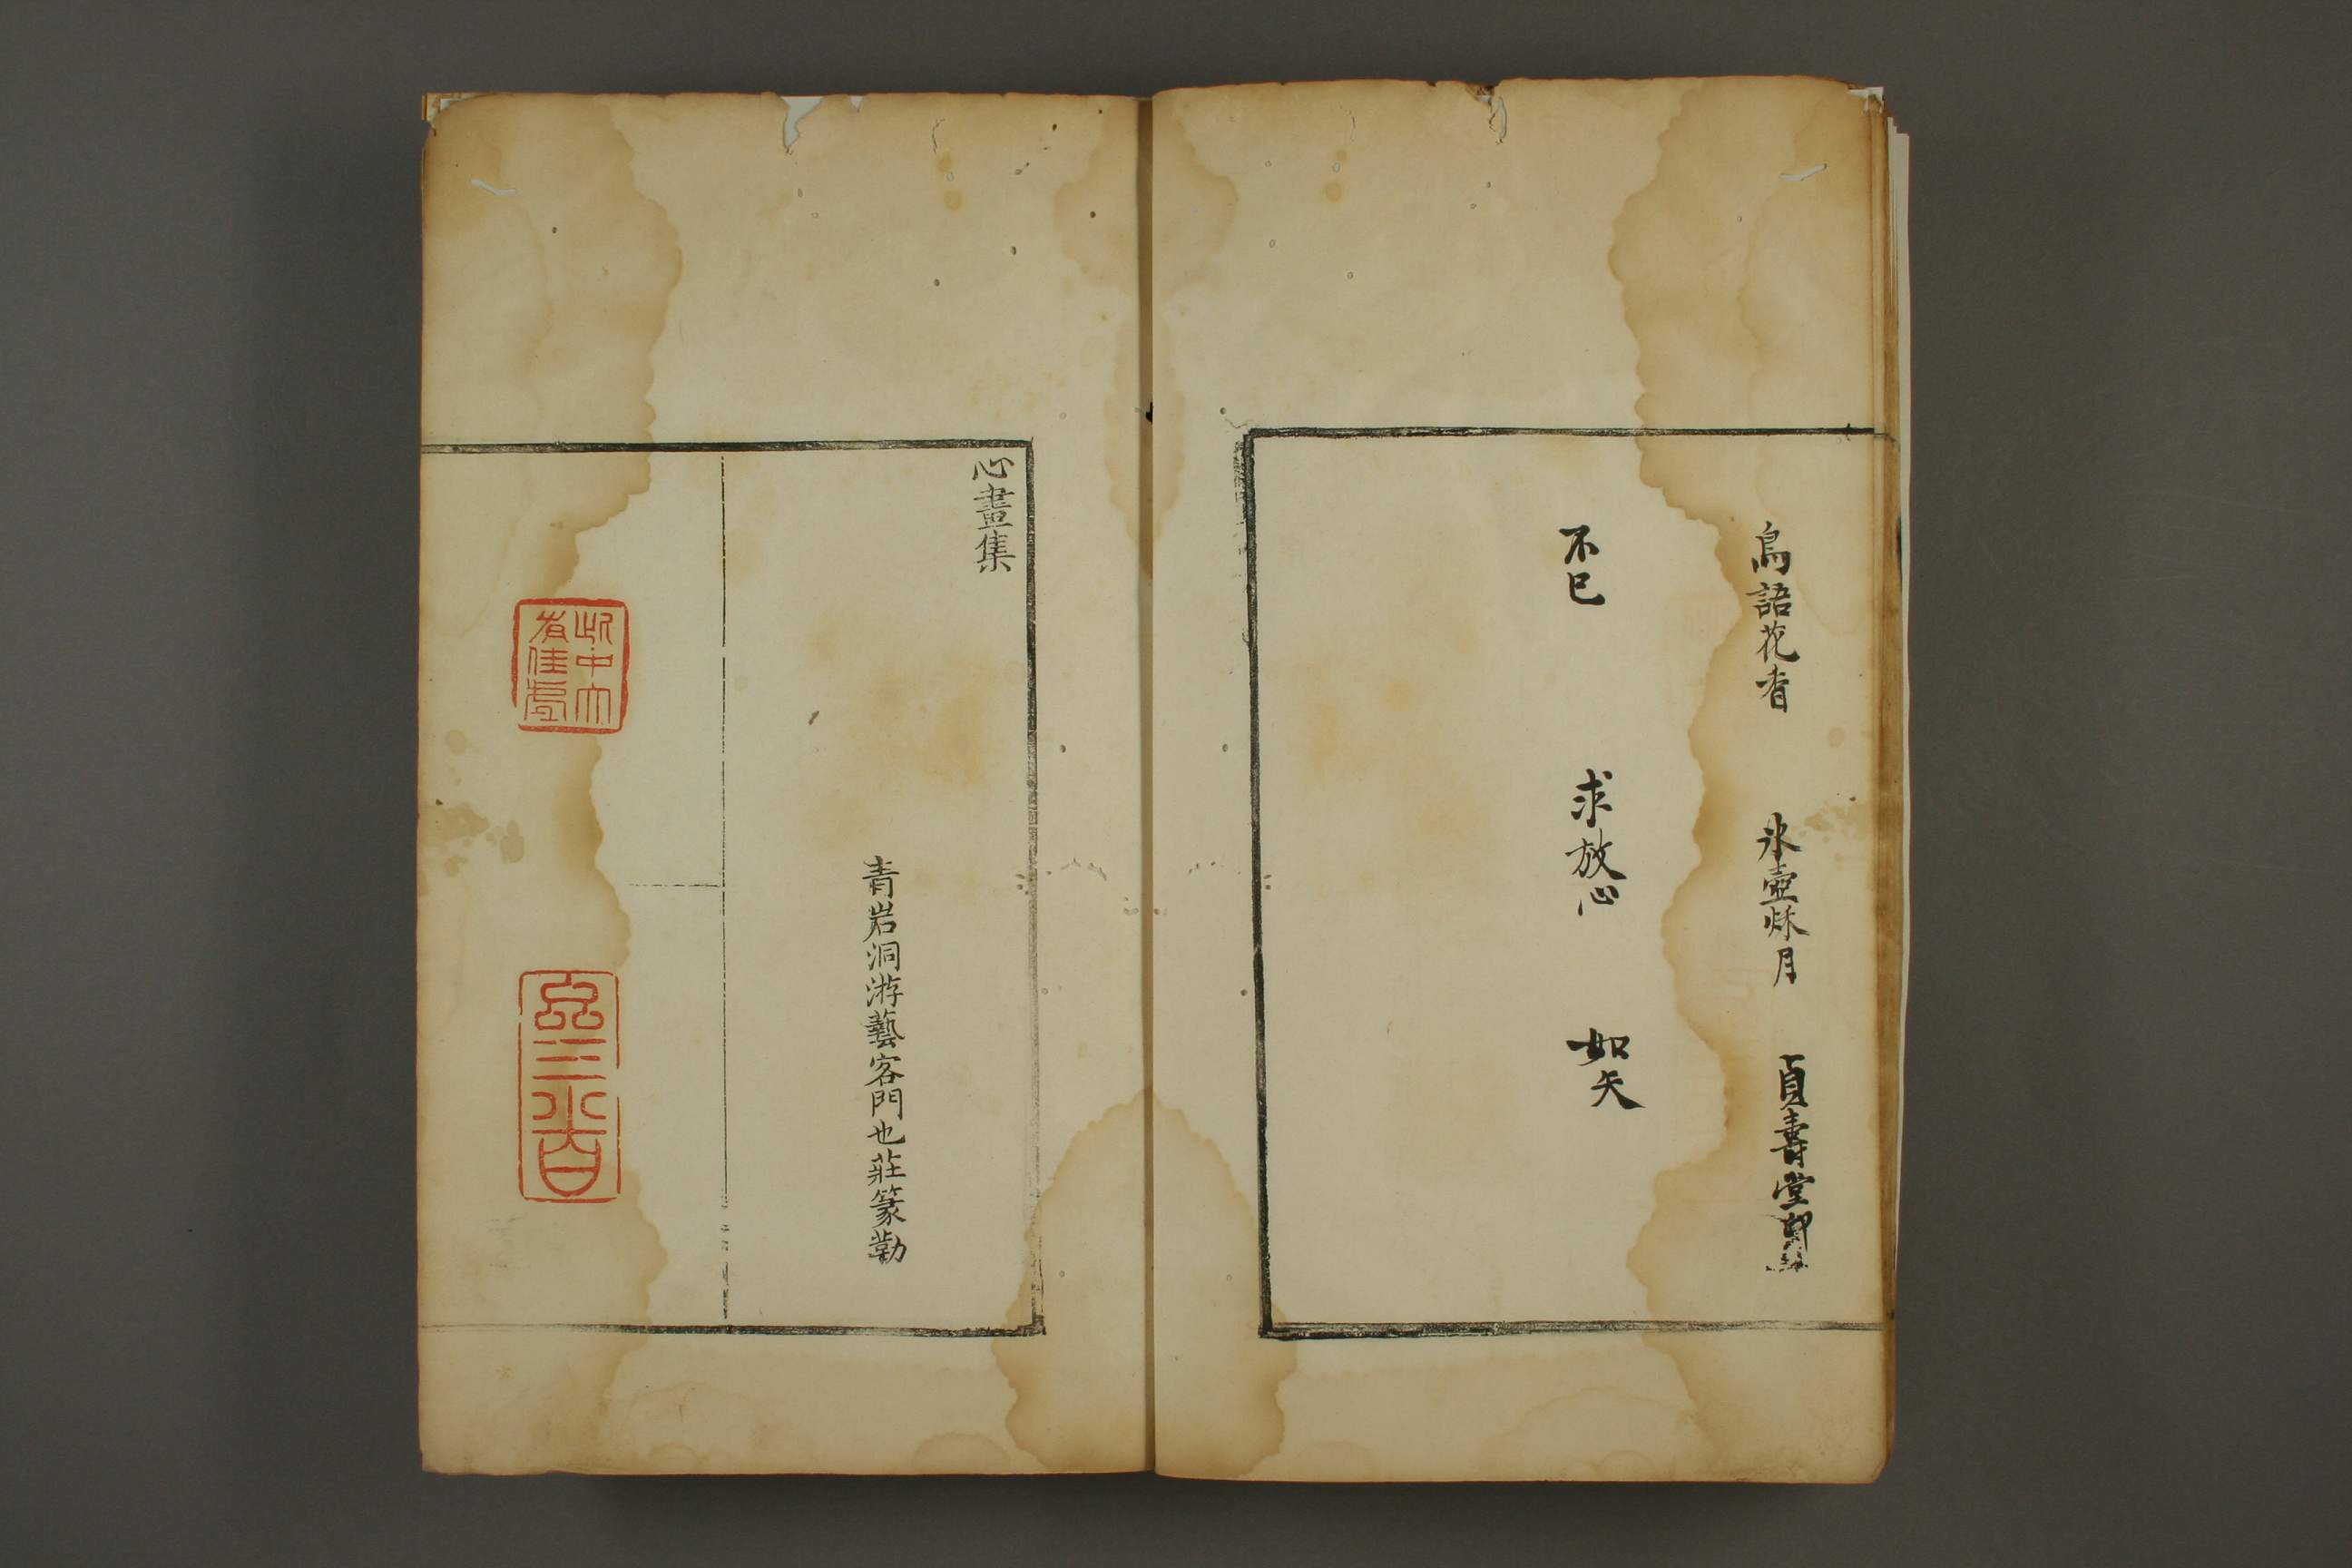 鳥語花香 氷壺秌月 貞壽堂
不已 求放心 如矢
心畫集
青岩洞游藝客門也莊篆勒
此中大
有佳處